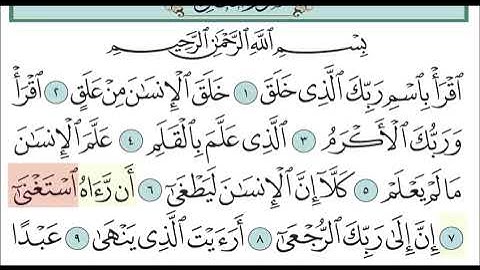 بِسْمِ اللَّهِ الرَّحْمَٰنِ الرَّحِيمِ
ٱقْرَأْ بِٱسْمِ رَبِّكَ ٱلَّذِى خَلَقَ ١ خَلَقَ ٱلْإِنسَٰنَ مِنْ عَلَقٍ ٢ ٱقْرَأْ
وَرَبُّكَ ٱلْأَكْرَمُ ٣ ٱلَّذِى عَلَّمَ بِٱلْقَلَمِ ٤ عَلَّمَ ٱلْإِنسَٰنَ
مَا لَمْ يَعْلَمْ ٥ كَلَّآ إِنَّ ٱلْإِنسَٰنَ لَيَطْغَىٰٓ ٦ أَن رَّءَاهُ ٱسْتَغْنَىٰٓ
٧ إِنَّ إِلَىٰ رَبِّكَ ٱلرُّجْعَىٰٓ ٨ أَرَءَيْتَ ٱلَّذِى يَنْهَىٰ ٩ عَبْدًا